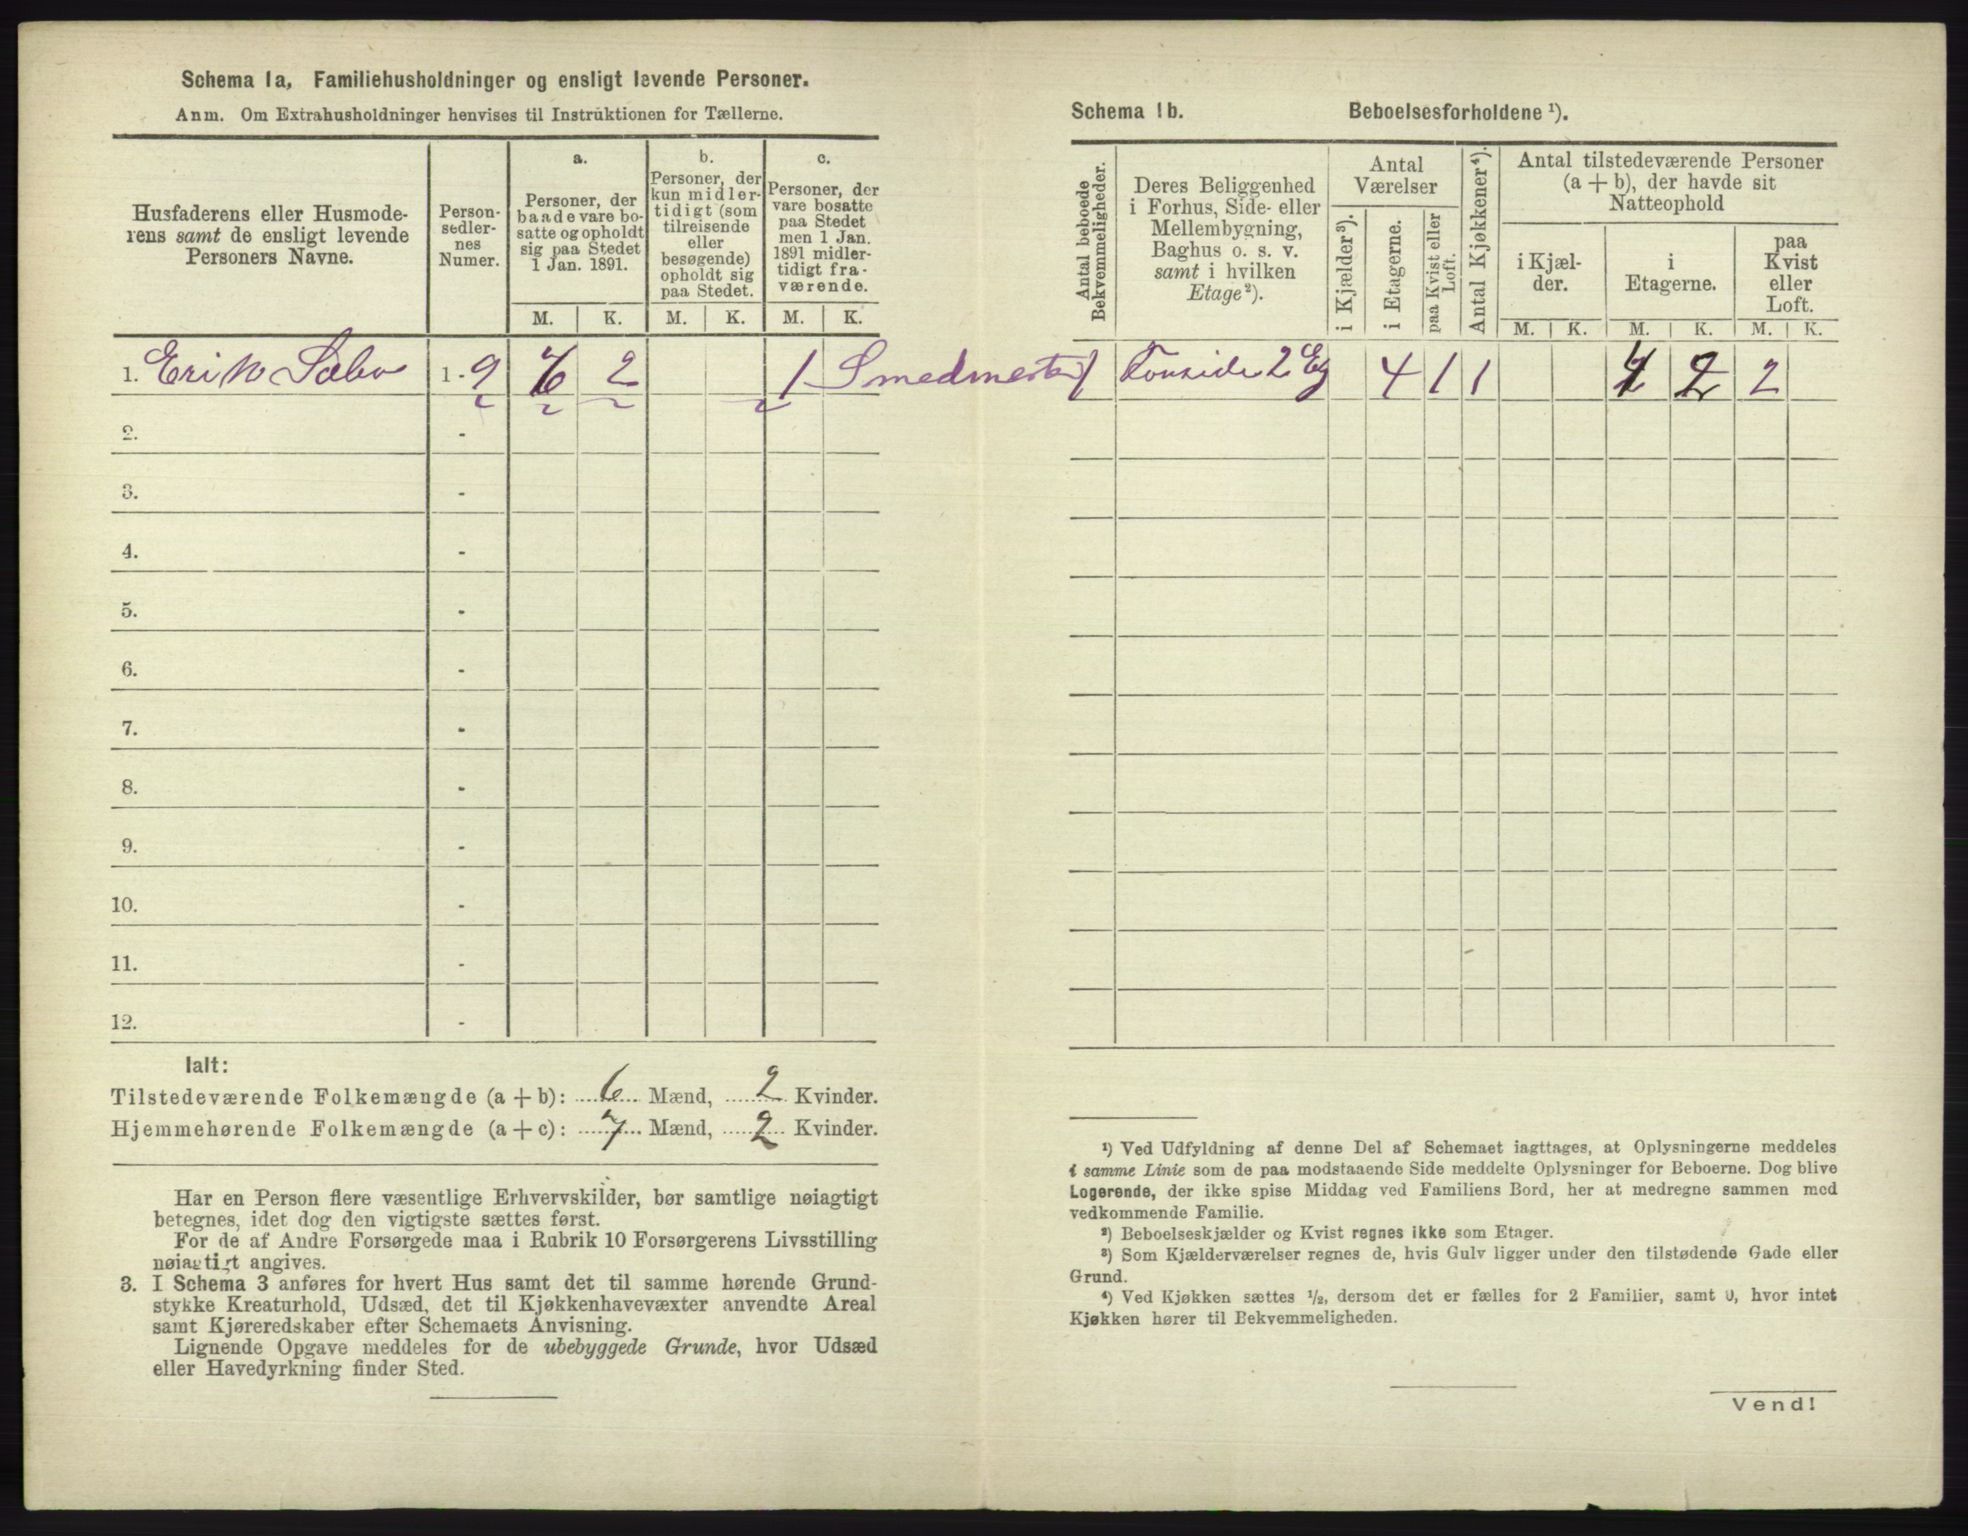 Schema 1a, Familiehusholdninger og ensligt levende Personer.
Anm. Om Extrahusholdninger henvises til Instruktionen for Tællerne.
Husfaderens eller Husmode-
rens samt de ensligt levende
Personers Navne.
Person-
sedler-
nes
Numer.
a.
Personer, der
baade vare bo-
satte og opholdt
sig paa Stedet
1 Jan. 1891.
b.
Personer, der
kun midler-
tidigt (som
tilreisende
eller
besøgende)
opholdt sig
paa Stedet.
c.
Personer, der
vare bosatte
paa Stedet
men 1 Jan.
1891 midler-
tidigt fra-
værende.
M. K. M. K. M. K.
1. Erik Sæbo 1-9 6 2 1 Smedmester
2. -
3. -
4. -
5. -
6. -
7. -
8. -
9. -
10. -
11. -
12. -
Ialt:
Tilstedeværende Folkemængde (a + b): 6 Mænd, 2 Kvinder.
Hjemmehørende Folkemængde (a + c): 7 Mænd, 2 Kvinder.
Har en Person flere væsentlige Erhvervskilder, bør samtlige nøiagtigt
betegnes, idet dog den vigtigste sættes først.
For de af Andre Forsørgede maa i Rubrik 10 Forsørgerens Livsstilling
nøiagtigt angives.
3. I Schema 3 anføres for hvert Hus samt det til samme hørende Grund-
stykke Kreaturhold, Udsæd, det til Kjøkkenhavevæxter anvendte Areal
samt Kjøreredskaber efter Schemaets Anvisning.
Lignende Opgave meddeles for de ubebyggede Grunde, hvor Udsæd
eller Havedyrkning finder Sted.
Schema 1b. Beboelsesforholdene ¹).
Antal beboede
Bekvemmeligheder.
Deres Beliggenhed
i Forhus, Side- eller
Mellembygning,
Baghus o. s. v.
samt i hvilken
Etage²).
Antal
Værelser
i Kjælder³).
i Etagerne.
paa Kvist eller
Loft.
Antal Kjøkkener⁴).
Antal tilstedeværende Personer
(a + b), der havde sit
Natteophold
i Kjæl-
der.
i
Etagerne.
paa
Kvist
eller
Loft.
M. K. M. K. M. K.
1 2 Etg 4 1 1 4 2 2
¹) Ved Udfyldning af denne Del af Schemaet iagttages, at Oplysningerne meddeles
i samme Linie som de paa modstaaende Side meddelte Oplysninger for Beboerne. Dog blive
Logerende, der ikke spise Middag ved Familiens Bord, her at medregne sammen med
vedkommende Familie.
²) Beboelseskjælder og Kvist regnes ikke som Etager.
³) Som Kjælderværelser regnes de, hvis Gulv ligger under den tilstødende Gade eller
Grund.
⁴) Ved Kjøkken sættes ½, dersom det er fælles for 2 Familier, samt 0, hvor intet
Kjøkken hører til Bekvemmeligheden.
Vend!